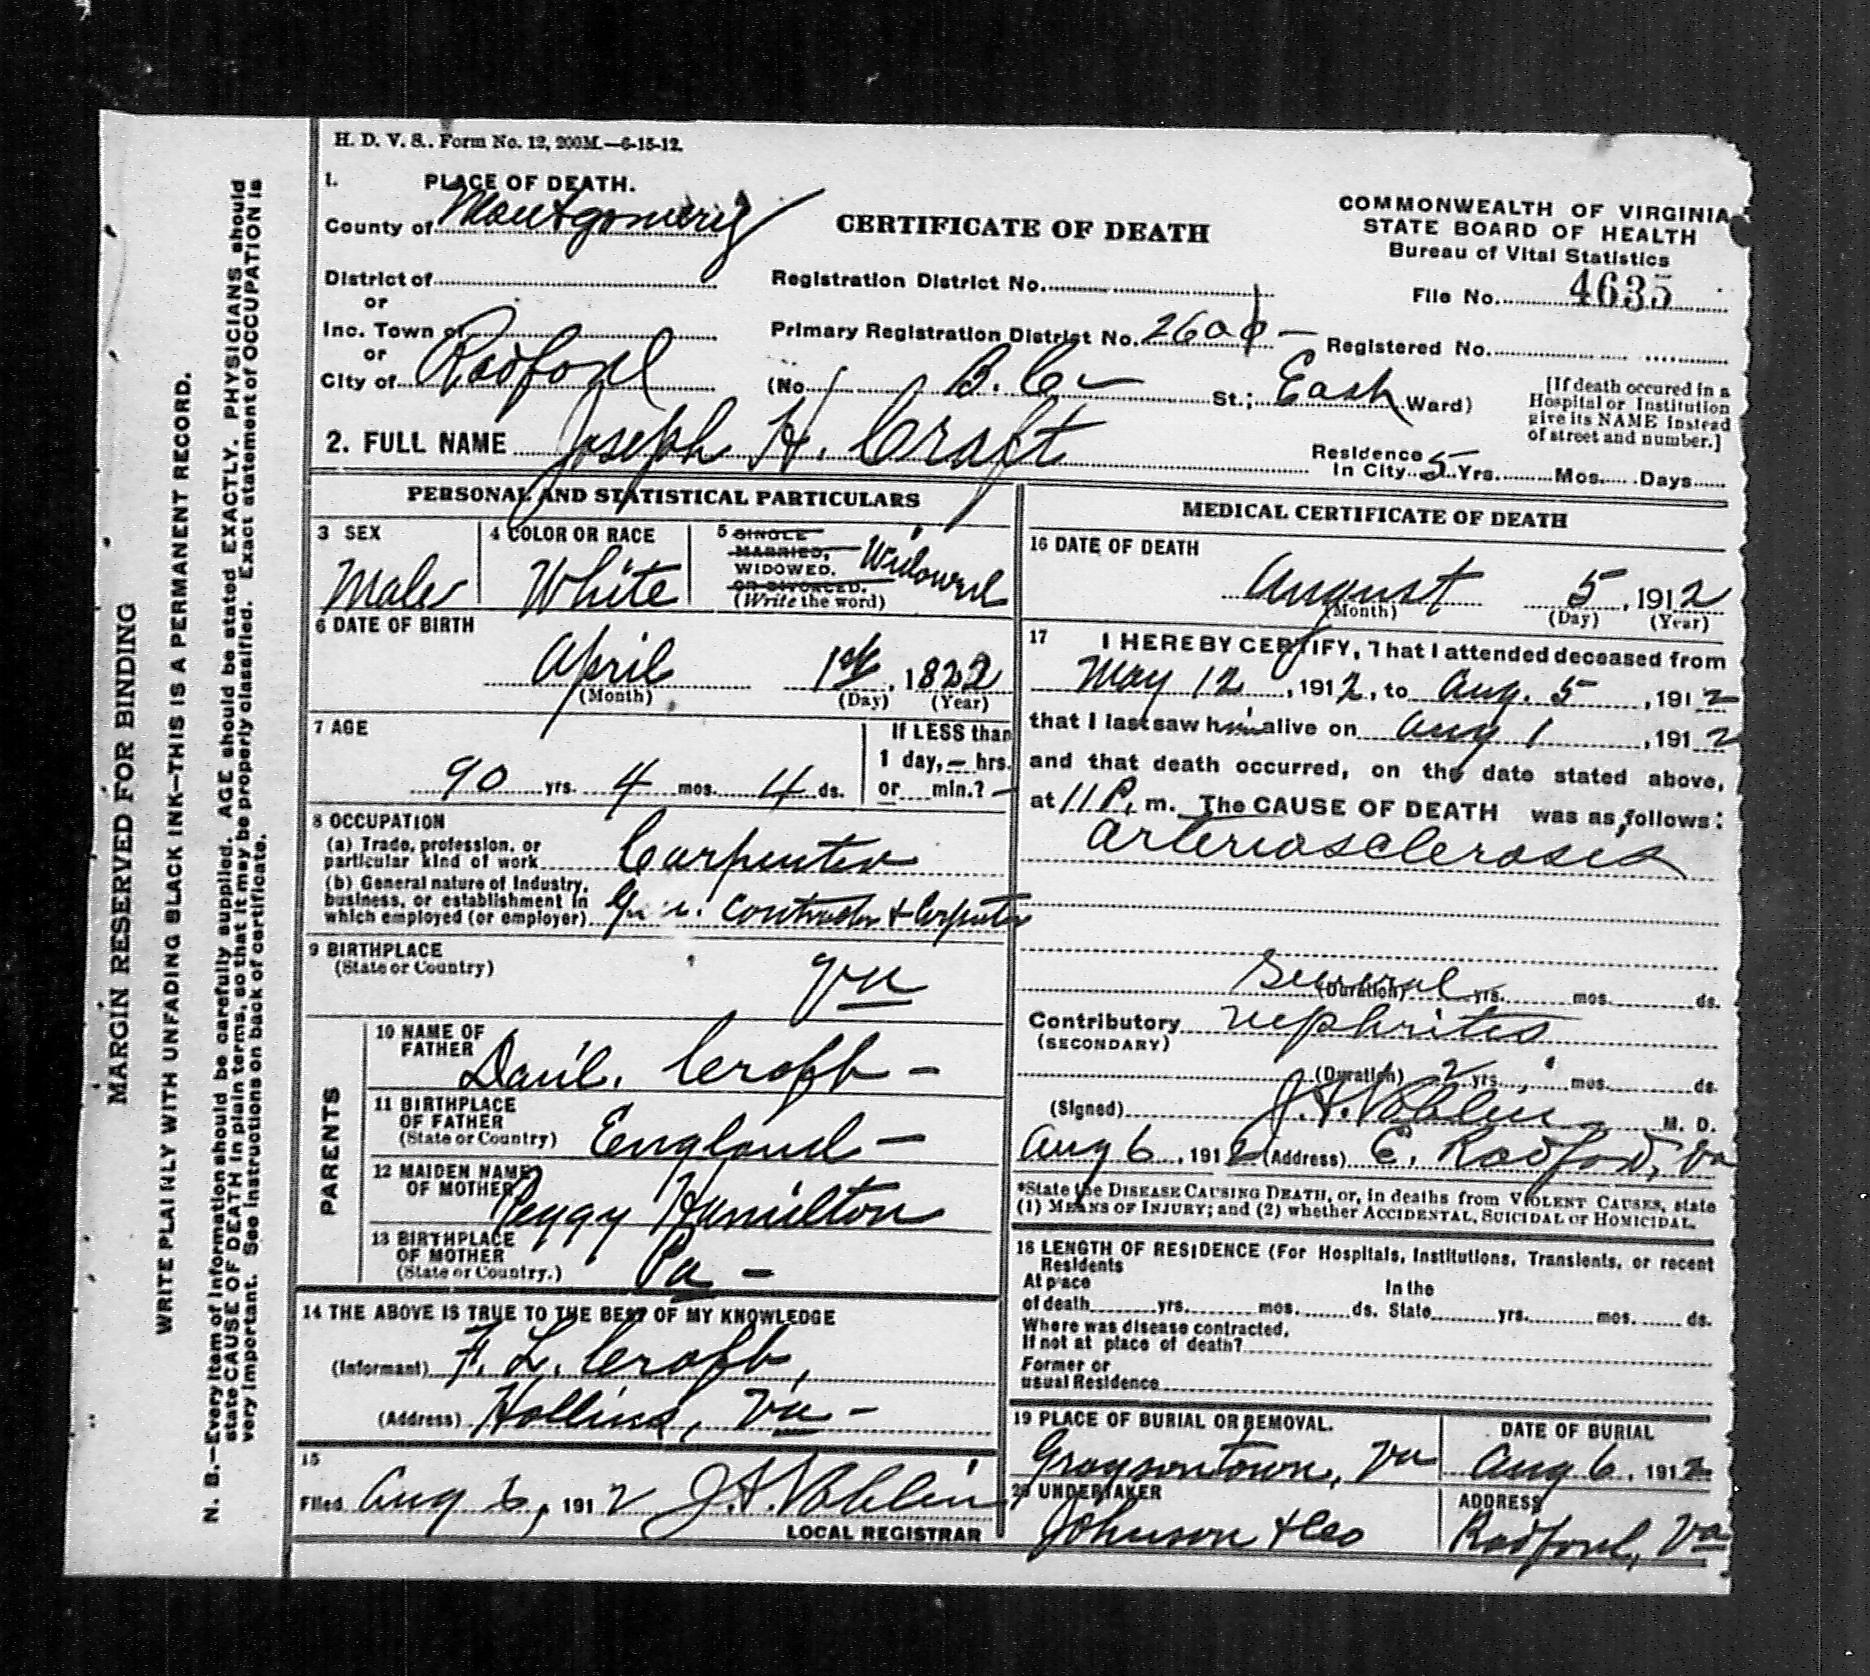 H. D. V. S.. Form No. 12, 200M.—6-15-12.
1. PLACE OF DEATH.
County of Montgomery
CERTIFICATE OF DEATH
COMMONWEALTH OF VIRGINIA
STATE BOARD OF HEALTH
Bureau of Vital Statistics
District of
Registration District No.
File No. 4635
or
Inc. Town of
Primary Registration District No.
Registered No.
or
City of Radford (No. St.; East Ward)
[If death occured in a
Hospital or Institution
give its NAME instead
of street and number.]
2. FULL NAME Joseph H. Craft
Residence
In City 5 Yrs. Mos. Days
PERSONAL AND STATISTICAL PARTICULARS
3 SEX
Male
4 COLOR OR RACE
White
5 SINGLE
MARRIED,
WIDOWED.
OR DIVORCED.
(Write the word)
Widowed
6 DATE OF BIRTH
April 1st, 1822
(Month) (Day) (Year)
7 AGE
90 yrs. 4 mos. 4 ds.
If LESS than
1 day, — hrs.
or min.? —
8 OCCUPATION
(a) Trade, profession, or
particular kind of work Carpenter
(b) General nature of Industry,
business, or establishment in
which employed (or employer) contractor & Carpenter
9 BIRTHPLACE
(State or Country)
Va
PARENTS
10 NAME OF
FATHER
Danl. Croft —
11 BIRTHPLACE
OF FATHER
(State or Country) England —
12 MAIDEN NAME
OF MOTHER
Peggy Hamilton
13 BIRTHPLACE
OF MOTHER
(State or Country.) Pa —
14 THE ABOVE IS TRUE TO THE BEST OF MY KNOWLEDGE
(Informant) F. L. Croft,
(Address) Hollins, Va —
15
Filed Aug 6, 1912 J. A. Noblin
LOCAL REGISTRAR
MEDICAL CERTIFICATE OF DEATH
16 DATE OF DEATH
August 5, 1912
(Month) (Day) (Year)
17 I HEREBY CERTIFY, That I attended deceased from
May 12, 1912, to Aug. 5, 1912
that I last saw him alive on Aug 1, 1912
and that death occurred, on the date stated above,
at 11 P. m. The CAUSE OF DEATH was as follows:
Arteriosclerosis
several
(Duration) yrs. mos. ds.
Contributory nephritis
(SECONDARY)
(Duration) 2 yrs. mos. ds.
(Signed) J. A. Noblin M. D.
Aug 6, 1912 (Address) E. Radford, Va
*State the DISEASE CAUSING DEATH, or, in deaths from VIOLENT CAUSES, state
(1) MEANS OF INJURY; and (2) whether ACCIDENTAL, SUICIDAL or HOMICIDAL.
18 LENGTH OF RESIDENCE (For Hospitals, Institutions, Transients, or recent
Residents
At place In the
of death yrs. mos. ds. State yrs. mos. ds.
Where was disease contracted,
If not at place of death?
Former or
usual Residence
19 PLACE OF BURIAL OR REMOVAL.
Graysontown, Va
DATE OF BURIAL
Aug 6, 1912
20 UNDERTAKER
Johnson & Co
ADDRESS
Radford, Va
MARGIN RESERVED FOR BINDING
WRITE PLAINLY WITH UNFADING BLACK INK—THIS IS A PERMANENT RECORD.
N. B.—Every item of information should be carefully supplied. AGE should be stated EXACTLY. PHYSICIANS should
state CAUSE OF DEATH in plain terms, so that it may be properly classified. Exact statement of OCCUPATION is
very important. See instructions on back of certificate.